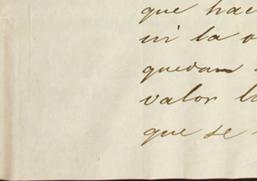 que hac
ni la o
quedan
valor l
que se